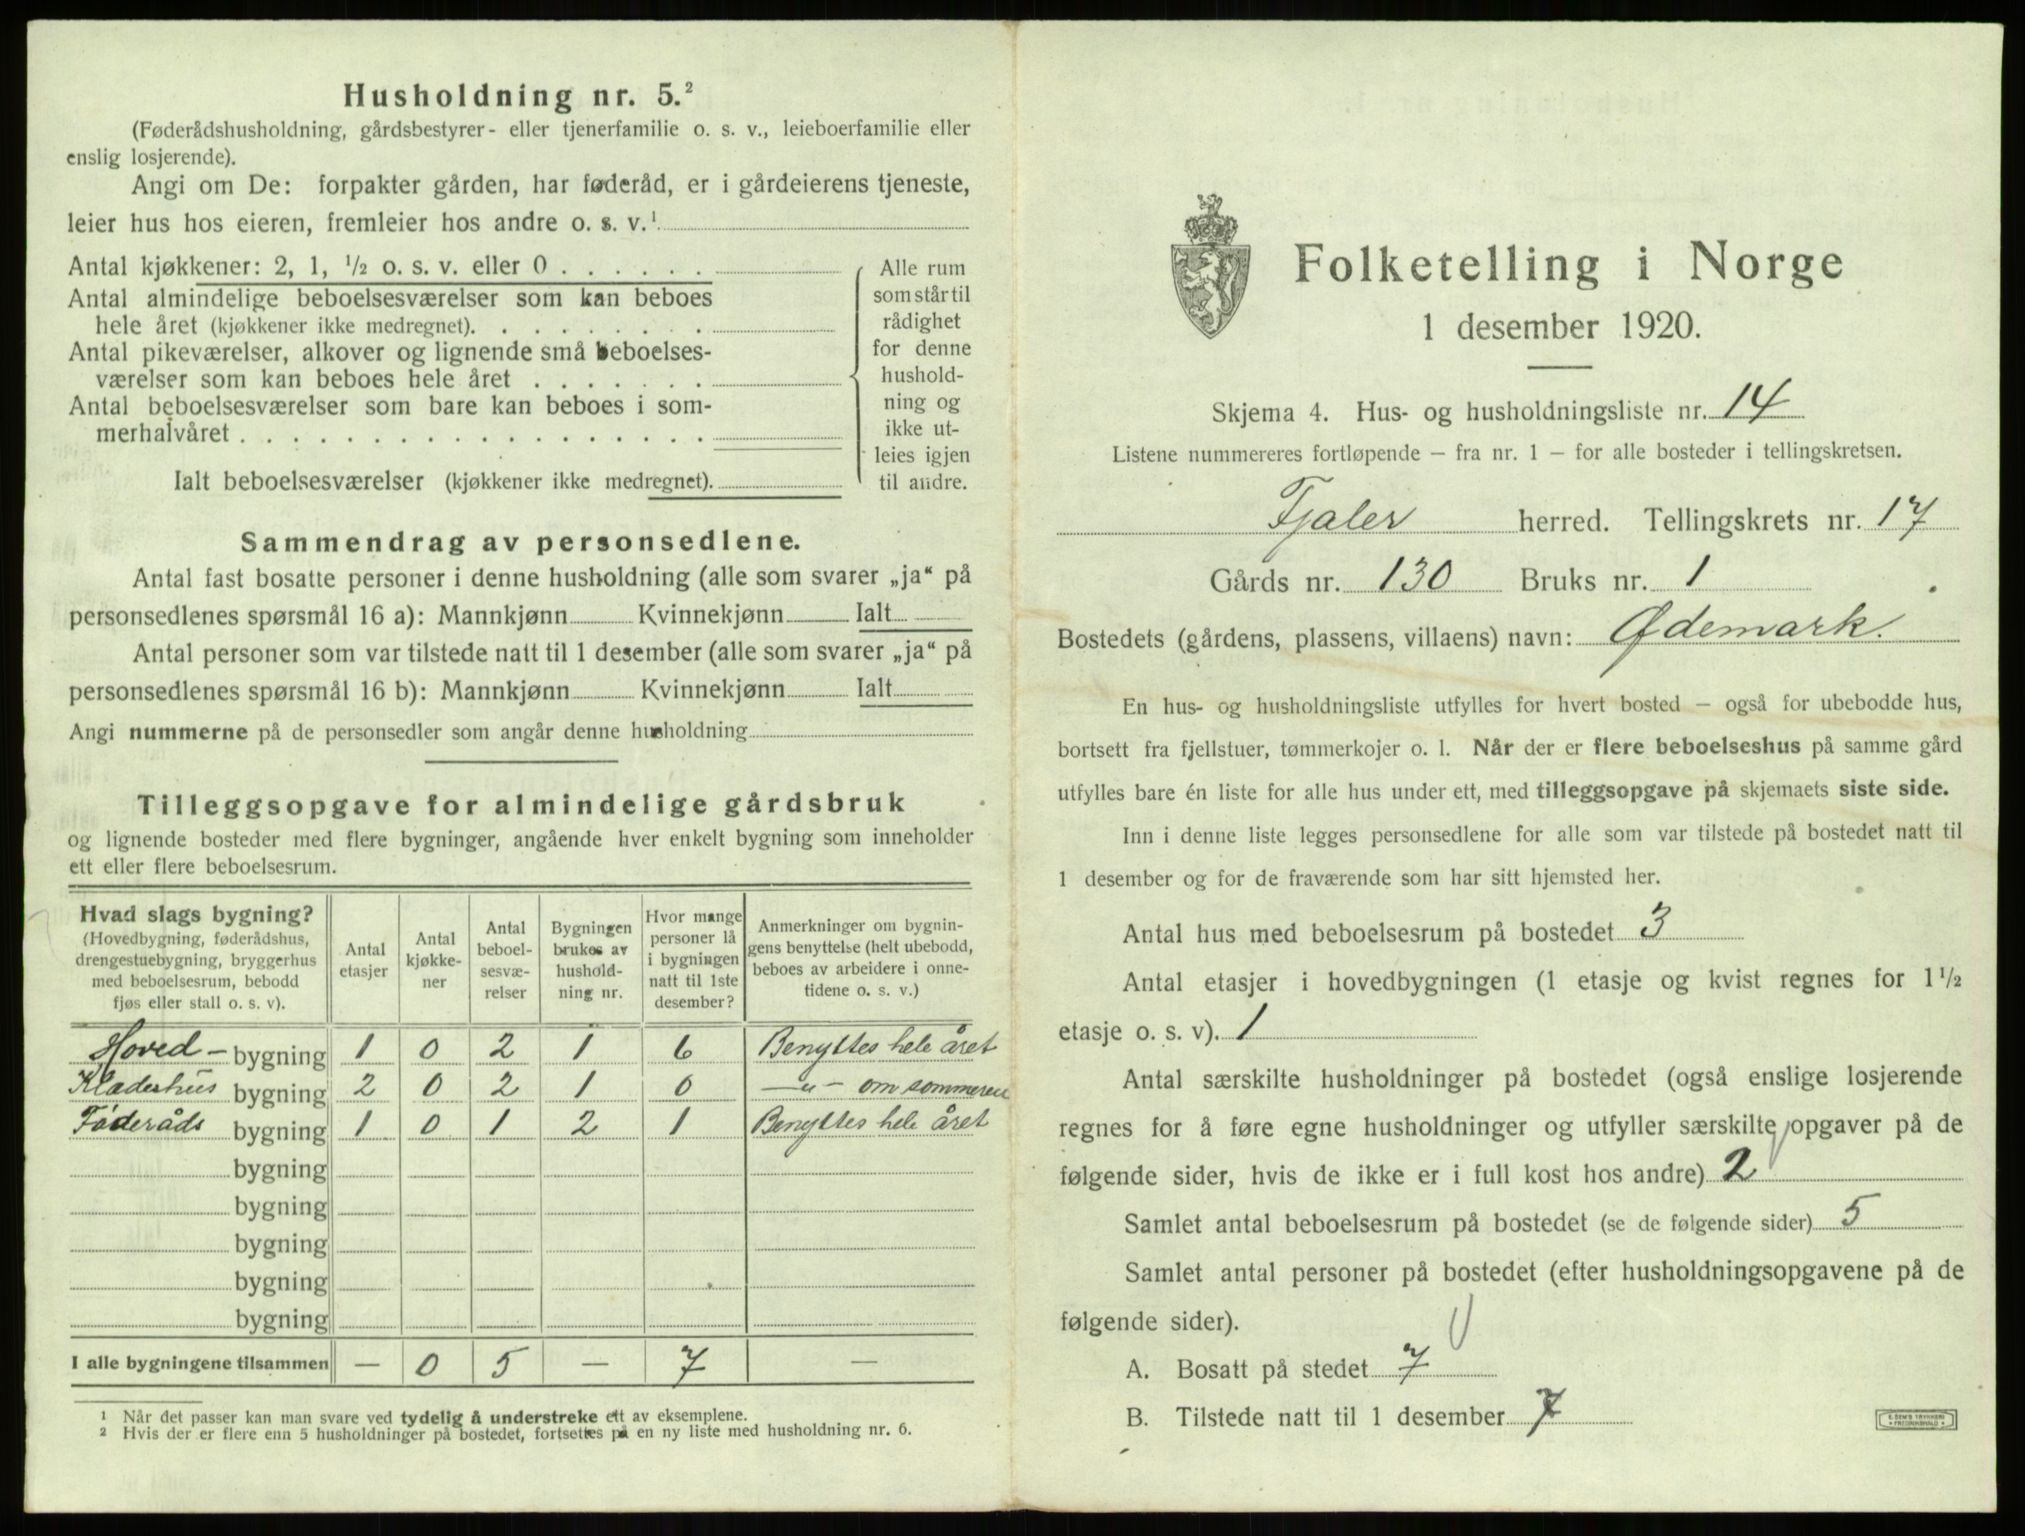 Husholdning nr. 5.²
(Føderådshusholdning, gårdsbestyrer- eller tjenerfamilie o. s. v., leieboerfamilie eller
enslig losjerende).
Angi om De: forpakter gården, har føderåd, er i gårdeierens tjeneste,
leier hus hos eieren, fremleier hos andre o. s. v.¹
Antal kjøkkener: 2, 1, ½ o. s. v. eller 0 . . . . . .
Antal almindelige beboelsesværelser som kan beboes
hele året (kjøkkener ikke medregnet). . . . . . . . .
Antal pikeværelser, alkover og lignende små beboelses-
værelser som kan beboes hele året . . . . . . .
Antal beboelsesværelser som bare kan beboes i som-
merhalvåret . . . . . . . . . . . . . . . . . .
Ialt beboelsesværelser (kjøkkener ikke medregnet).
Alle rum
som står til
rådighet
for denne
hushold-
ning og
ikke ut-
leies igjen
til andre.
Sammendrag av personsedlene.
Antal fast bosatte personer i denne husholdning (alle som svarer „ja“ på
personsedlenes spørsmål 16 a): Mannkjønn Kvinnekjønn Ialt
Antal personer som var tilstede natt til 1 desember (alle som svarer „ja“ på
personsedlenes spørsmål 16 b): Mannkjønn Kvinnekjønn Ialt
Angi nummerne på de personsedler som angår denne husholdning
Tilleggsopgave for almindelige gårdsbruk
og lignende bosteder med flere bygninger, angående hver enkelt bygning som inneholder
ett eller flere beboelsesrum.
Hvad slags bygning?
(Hovedbygning, føderådshus,
drengestuebygning, bryggerhus
med beboelsesrum, bebodd
fjøs eller stall o. s. v).
Antal
etasjer
Antal
kjøkke-
ner
Antal
beboel-
sesvæ-
relser
Bygningen
brukes av
hushold-
ning nr.
Hvor mange
personer lå
i bygningen
natt til 1ste
desember?
Anmerkninger om bygnin-
gens benyttelse (helt ubebodd,
beboes av arbeidere i onne-
tidene o. s. v.)
Hoved- bygning 1 0 2 1 6 Benyttes hele året
Klædeshus bygning 2 0 2 1 0 —„— om sommeren
Føderåds bygning 1 0 1 2 1 Benyttes hele året
bygning
bygning
bygning
bygning
bygning
I alle bygningene tilsammen — 0 5 — 7 —
¹ Når det passer kan man svare ved tydelig å understreke ett av eksemplene.
² Hvis der er flere enn 5 husholdninger på bostedet, fortsettes på en ny liste med husholdning nr. 6.
Folketelling i Norge
1 desember 1920.
Skjema 4. Hus- og husholdningsliste nr. 14
Listene nummereres fortløpende – fra nr. 1 – for alle bosteder i tellingskretsen.
Fjaler herred. Tellingskrets nr. 17
Gårds nr. 130 Bruks nr. 1
Bostedets (gårdens, plassens, villaens) navn: Ødemark.
En hus- og husholdningsliste utfylles for hvert bosted – også for ubebodde hus,
bortsett fra fjellstuer, tømmerkojer o. l. Når der er flere beboelseshus på samme gård
utfylles bare én liste for alle hus under ett, med tilleggsopgave på skjemaets siste side.
Inn i denne liste legges personsedlene for alle som var tilstede på bostedet natt til
1 desember og for de fraværende som har sitt hjemsted her.
Antal hus med beboelsesrum på bostedet 3
Antal etasjer i hovedbygningen (1 etasje og kvist regnes for 1½
etasje o. s. v). 1
Antal særskilte husholdninger på bostedet (også enslige losjerende
regnes for å føre egne husholdninger og utfyller særskilte opgaver på de
følgende sider, hvis de ikke er i full kost hos andre) 2
Samlet antal beboelsesrum på bostedet (se de følgende sider) 5
Samlet antal personer på bostedet (efter husholdningsopgavene på de
følgende sider).
A. Bosatt på stedet 7
B. Tilstede natt til 1 desember 7